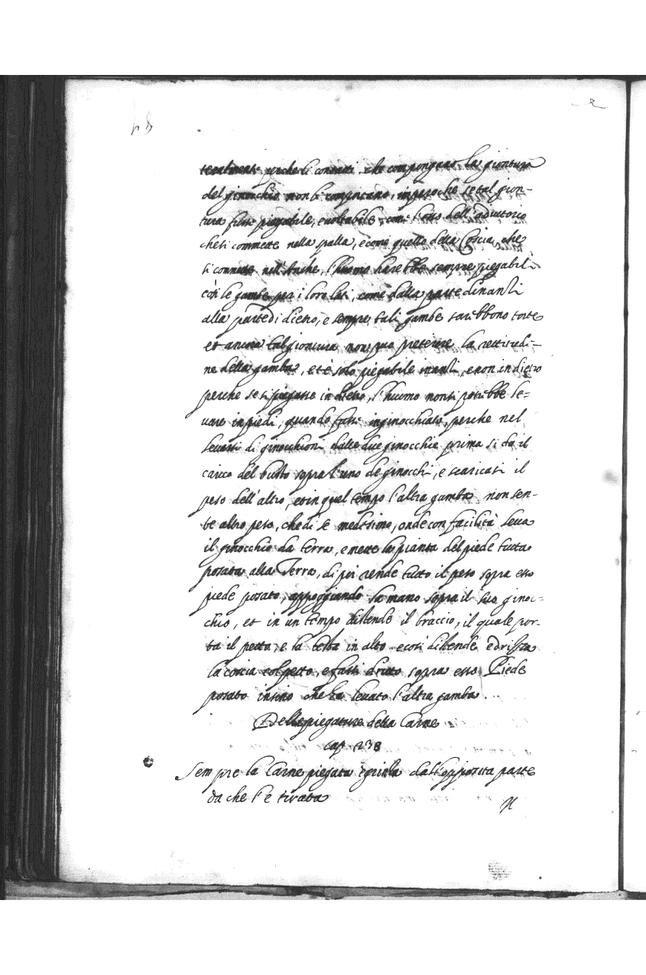 perche li contatti che compongano la giontura
del ginocchio non li compongano, impero che se tal gion-
tura fusse piegabile, e voltabile, com l'osso dell'adiutorio
che si connette nella spalla, e come quello della Coscia, che
si connette nell'Anche, l'huomo harebbe sempre piegabili
così le gambe per i loro lati, come dalla parte dinanti
alla parte di dietro, e sempre tali gambe sarebbono torte
et ancora tal giontura non puo preterire la rettitudi-
ne della gamba, et è solo piegabile inanti, e non in dietro
perche se si piegasse in dietro, l'huomo non si potrebbe le-
uare in piedi, quando fusse inginocchiato, perche nel
leuarsi di ginocchioni dalle due ginocchia prima si da il
carico del busto sopra l'uno de ginocchi, e scaricasi il
peso dell'altro, et in quel tempo l'altra gamba non sen-
te altro peso, che di se medesimo, onde con facilità leua
il ginocchio da terra, e mette la pianta del piede tutta
posata alla Terra, di poi rende tutto il peso sopra esso
piede posato, appoggiando la mano sopra il suo ginoc-
chio, et in un tempo distende il braccio, il quale por-
ta il petto, e la testa in alto e così distende e drizza
la coscia col petto, e fassi dritto sopra esso Piede
posato insino che ha leuato l'altra gamba.
Delle piegature della Carne
cap. 238
Sempre la Carne piegata è grinza dall'opposita parte
da che l'è tirata